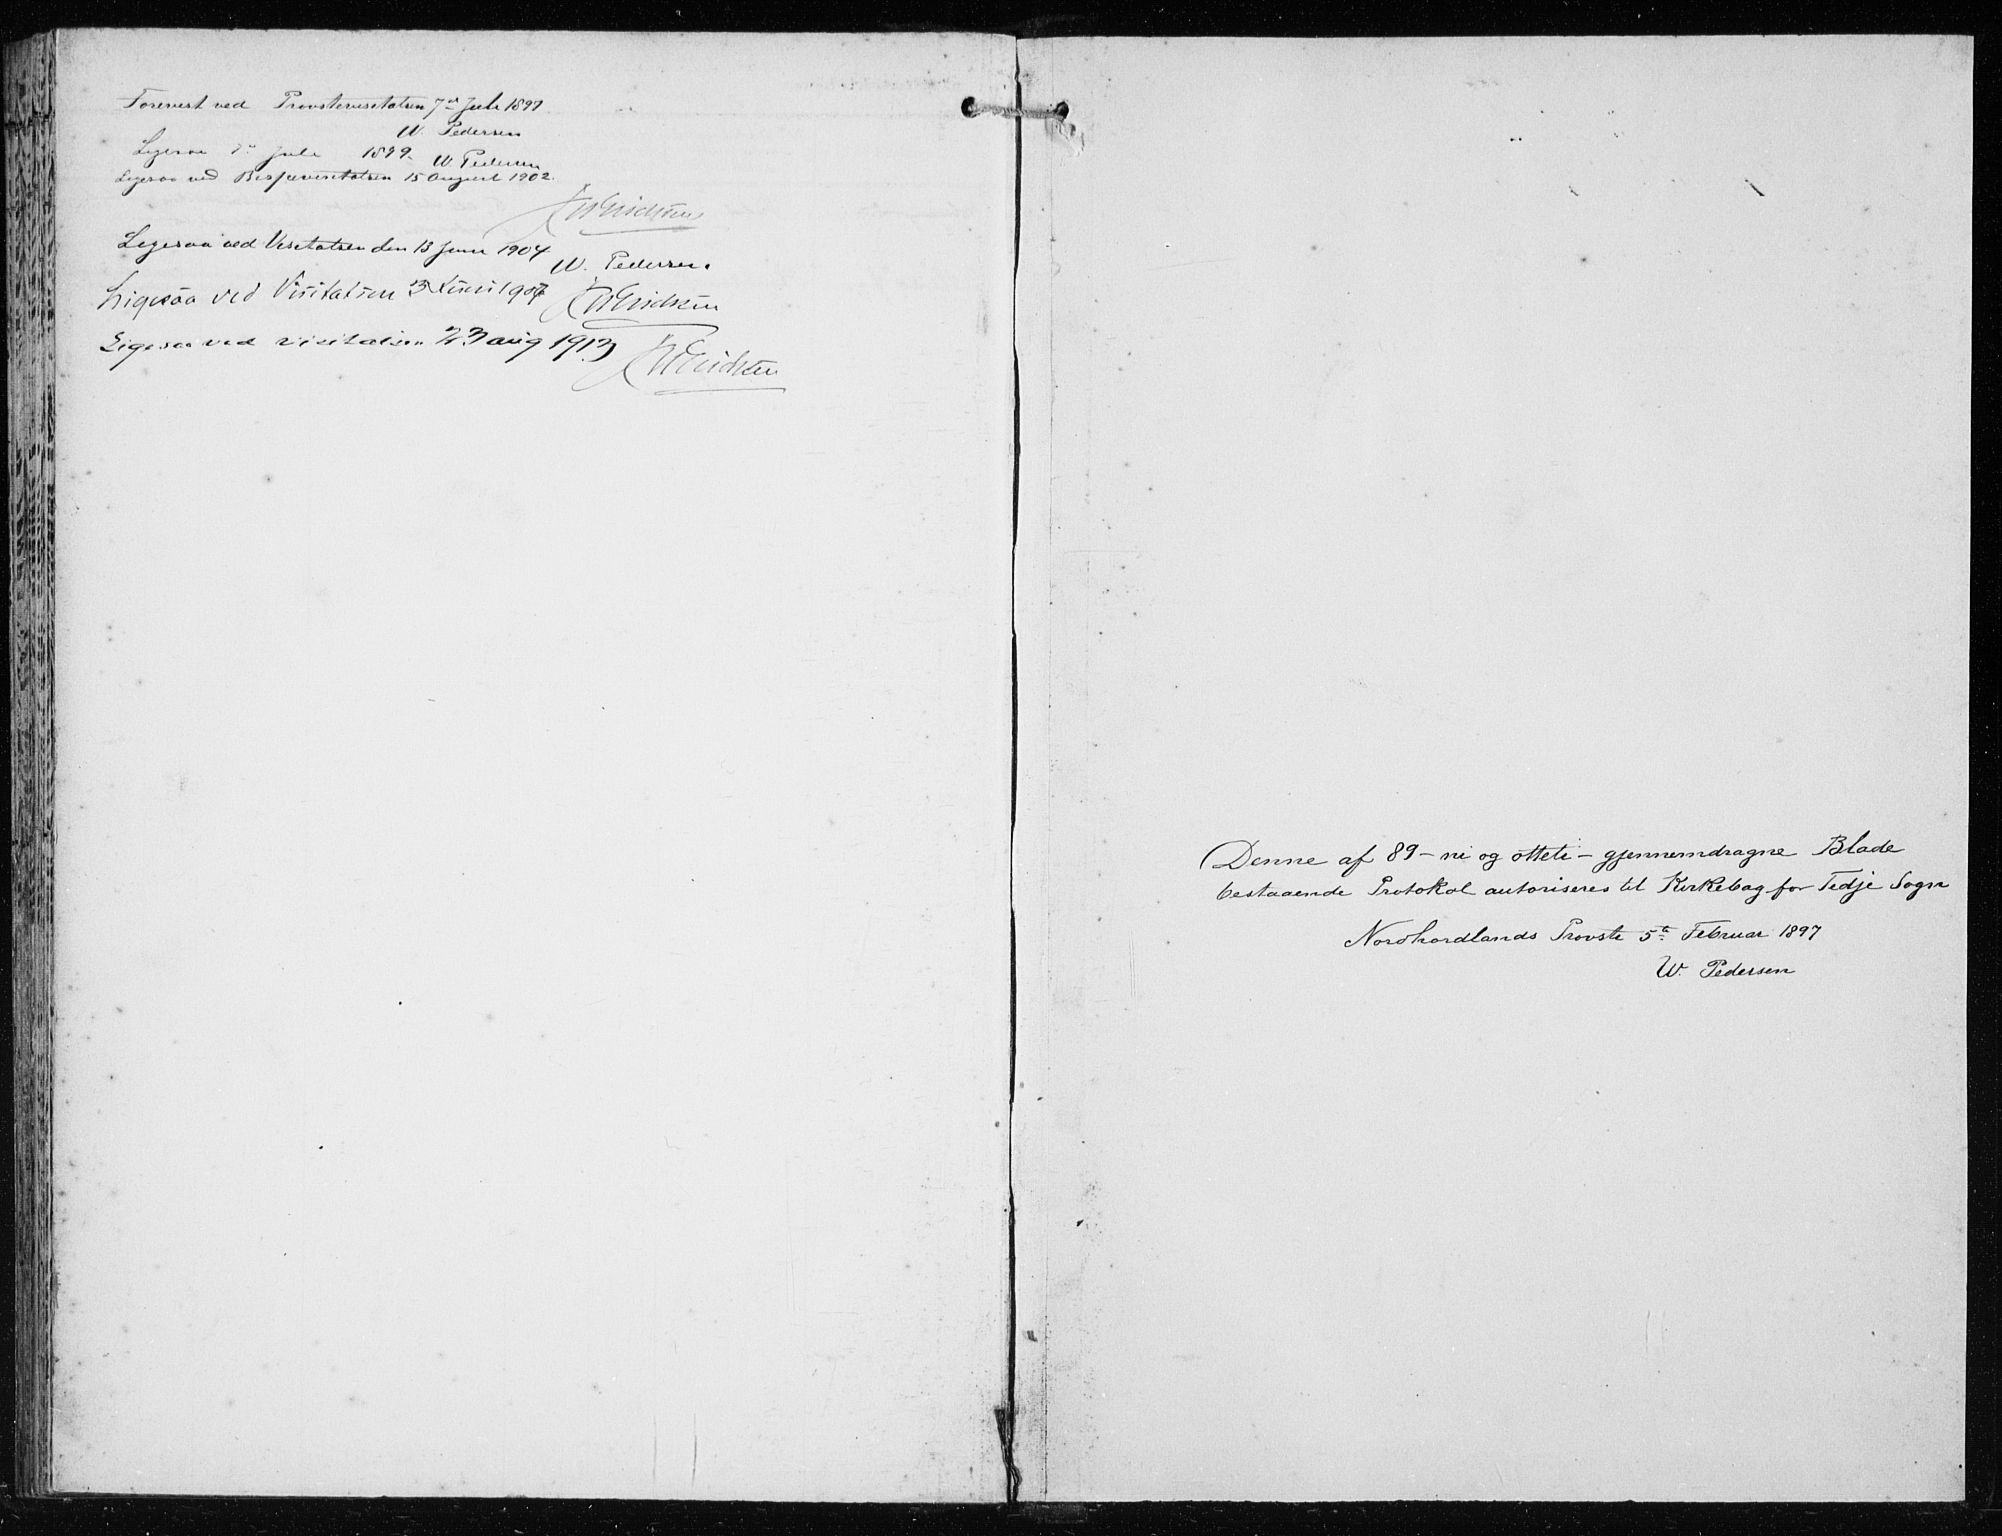 Forevist ved Provstevisitatsen 7de Juli 1897
W. Pedersen
Ligesaa Juli 1899. W. Pedersen
Ligesaa ved Bispevisitatsen 15 August 1902.
Ligesaa ved Visitatsen den 13 Juni 1904
W. Pedersen.
Ligesaa ved Visitatsen 3 Juni 1907
Ligesaa ved visitatsen 23 aug 1913
Denne af 89 – ni og otteti – gjennemdragne Blade
bestaaende Protokol autoriseres til Kirkebog for Fedje Sogn
Nordhordlands Provsti 5te Februar 1897
W. Pedersen